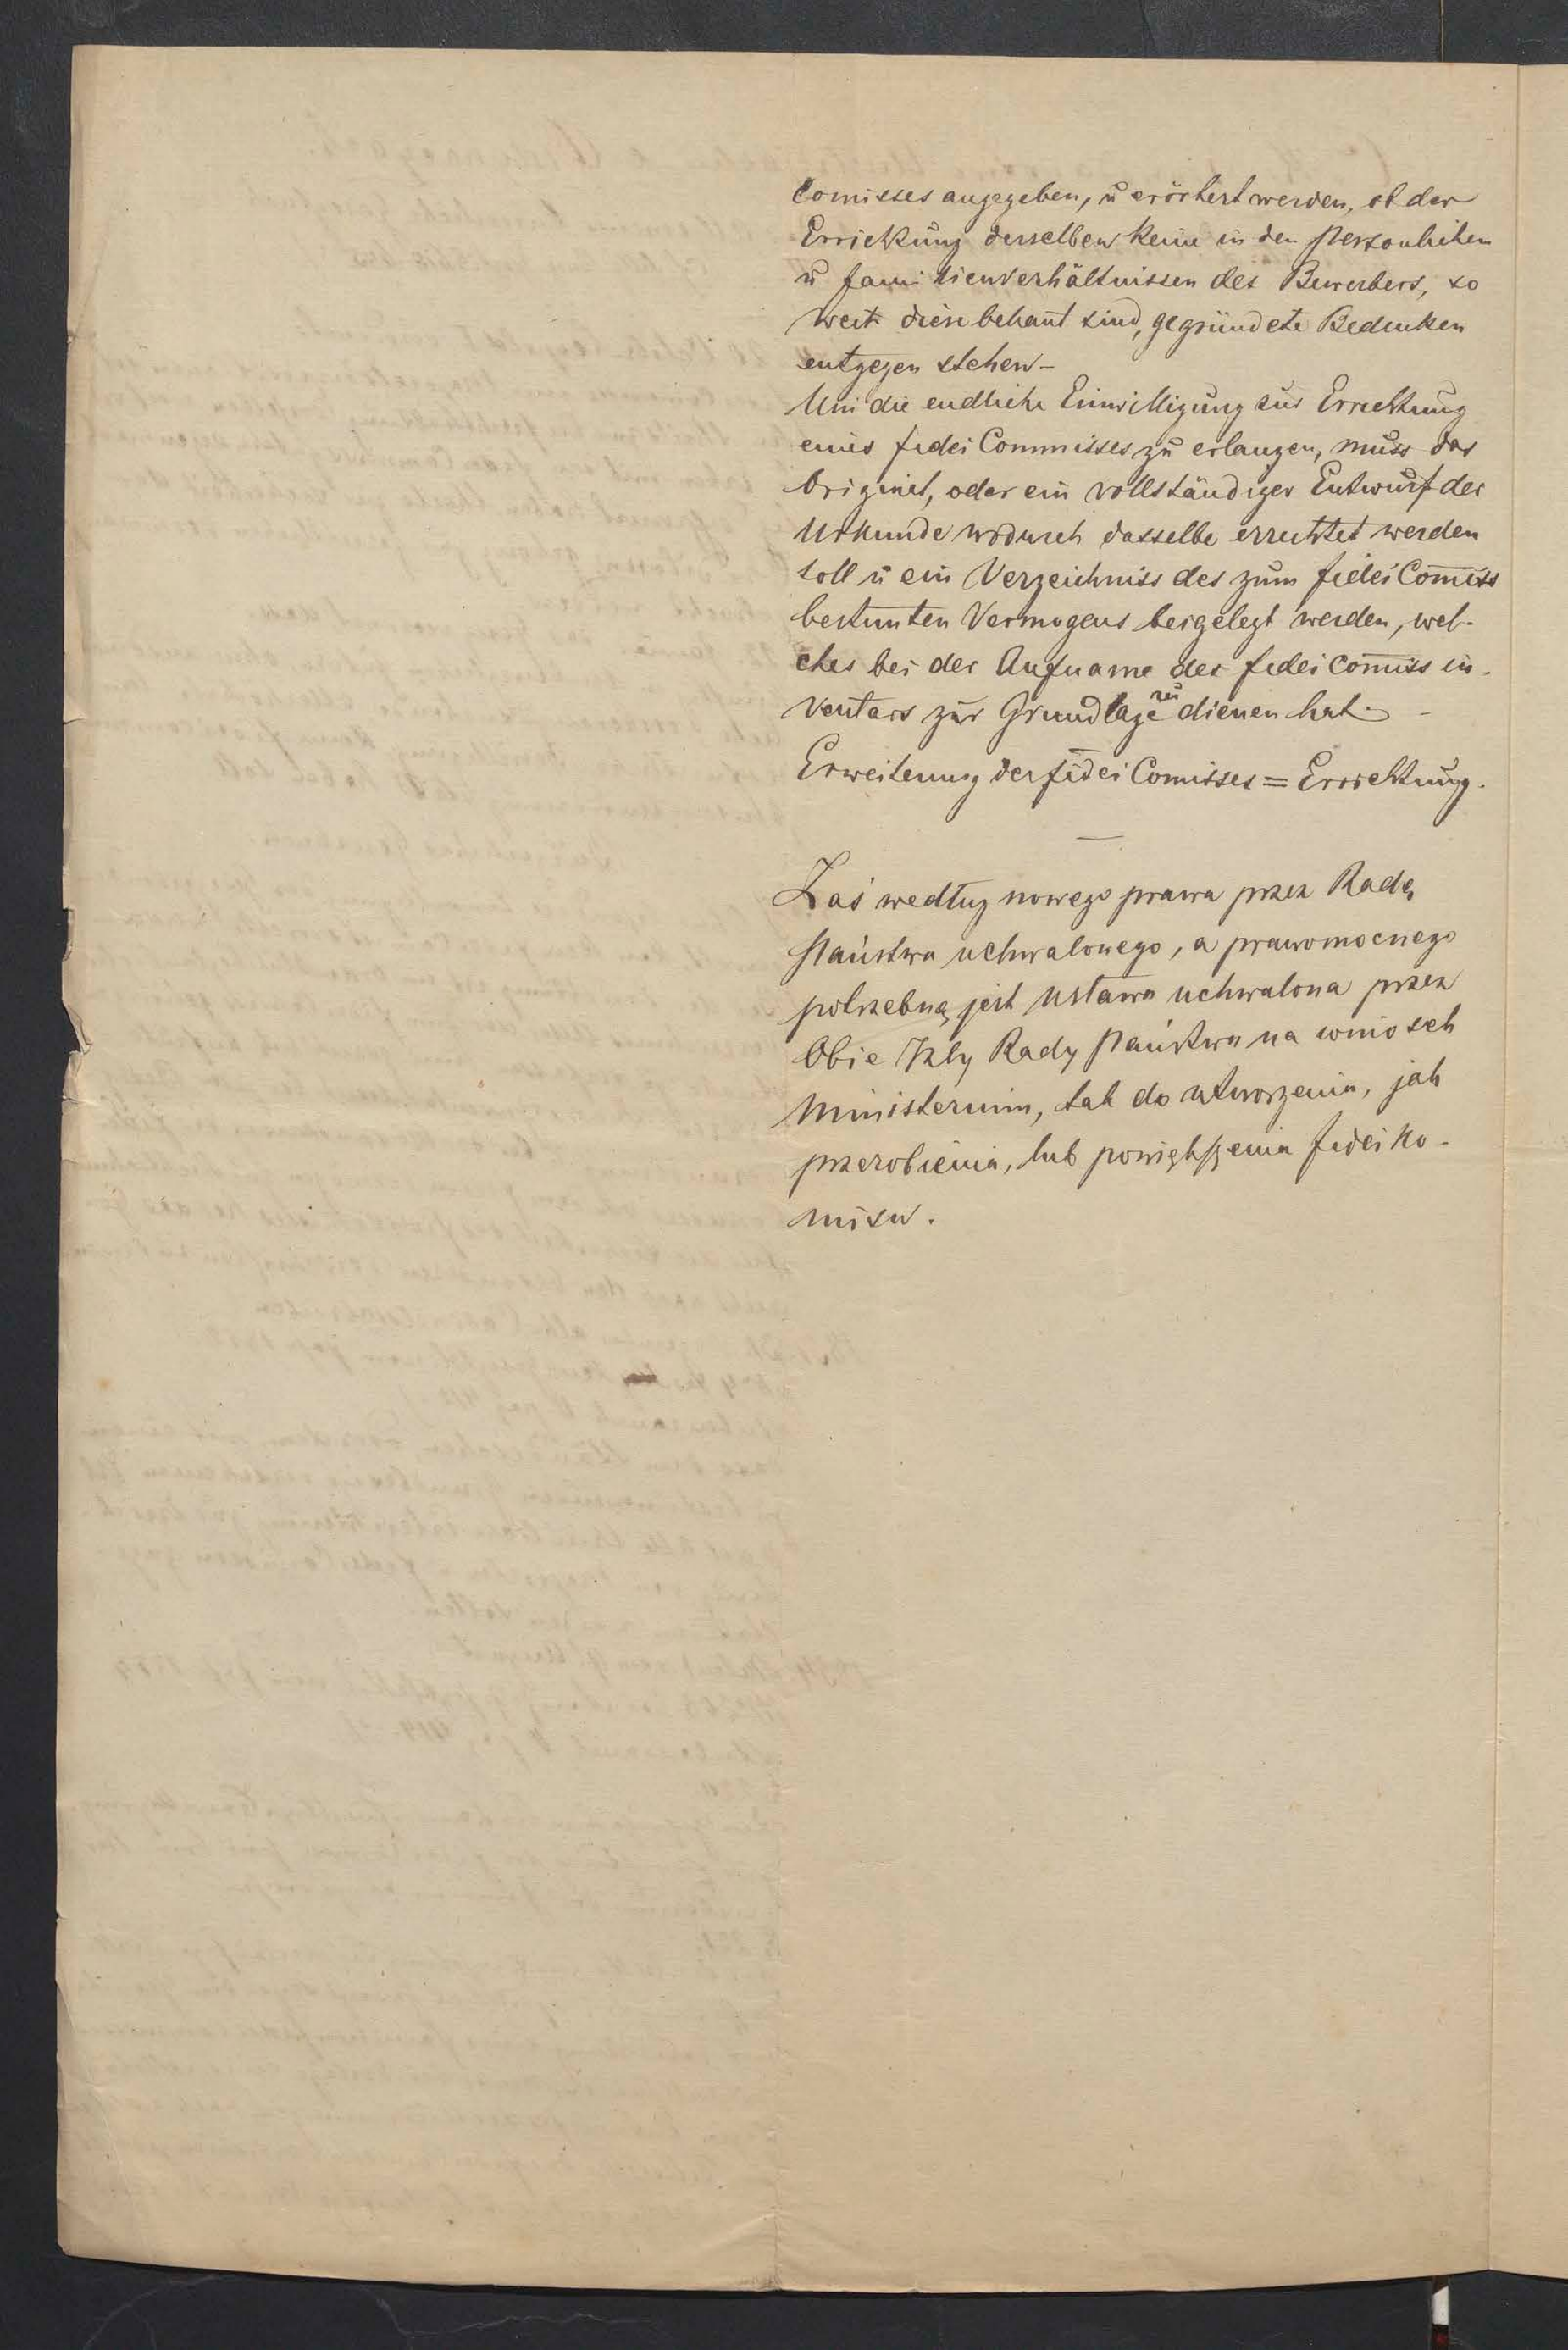 Comisses angegeben, u erörtert werden, ob der
Errichtung desselben keine in den persönlichen
u familienverhältnissen des Bewerbers, so
weit diese bekant sind, gegründete Bedenken
entgegen stehen –
Um die endliche Einwilligung zur Errichtung
eines fidei Commisses zu erlangen, muss das
Original, oder ein vollständiger Entwurf der
Urkunde wodurch dasselbe errichtet werden
soll u ein Verzeichniss des zum fidei Comiss
bestimten Vermogens beigelegt werden, wel-
ches bei der Aufname des fidei comiss in-
ventars zur Grundlage zu dienen hat. –
Erweiterung der fidei Comisses = Errichtung.
—
Zaś według nowego prawa przez Radę
Państwa uchwalonego, a prawomocnego
potrzebną jest ustawa uchwalona przez
Obie Izby Rady Państwa na wniosek
Ministerium, tak do utworzenia, jak
przerobienia, lub powiększenia fidei ko-
misu.